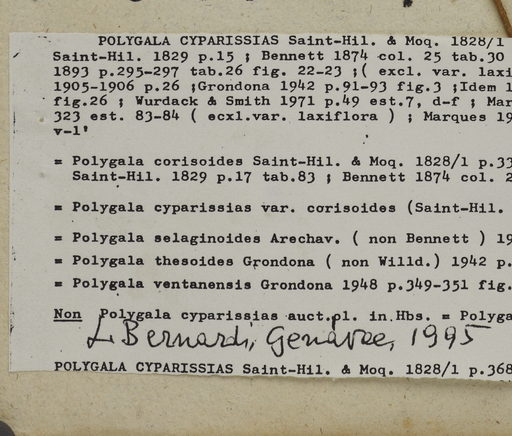 POLYGALA CYPARISSIAS Saint-Hil. & Moq. 1828/1
Saint-Hil. 1829 p.15 ; Bennett 1874 col. 25 tab.30
1893 p.295-297 tab.26 fig. 22-23 ;( excl. var. laxi
1905-1906 p.26 ;Grondona 1942 p.91-93 fig.3 ;Idem 1
fig.26 ; Wurdack & Smith 1971 p.49 est.7, d-f ; Mar
323 est. 83-84 ( ecxl.var. laxiflora ) ; Marques 19
v-1'
= Polygala corisoides Saint-Hil. & Moq. 1828/1 p.33
Saint-Hil. 1829 p.17 tab.83 ; Bennett 1874 col. 2
= Polygala cyparissias var. corisoides (Saint-Hil.
= Polygala selaginoides Arechav. ( non Bennett ) 19
= Polygala thesoides Grondona ( non Willd.) 1942 p.
= Polygala ventanensis Grondona 1948 p.349-351 fig.
Non Polygala cyparissias auct.pl. in Hbs. = Polyga
L Bernardi, Genavae, 1995
POLYGALA CYPARISSIAS Saint-Hil. & Moq. 1828/1 p.368